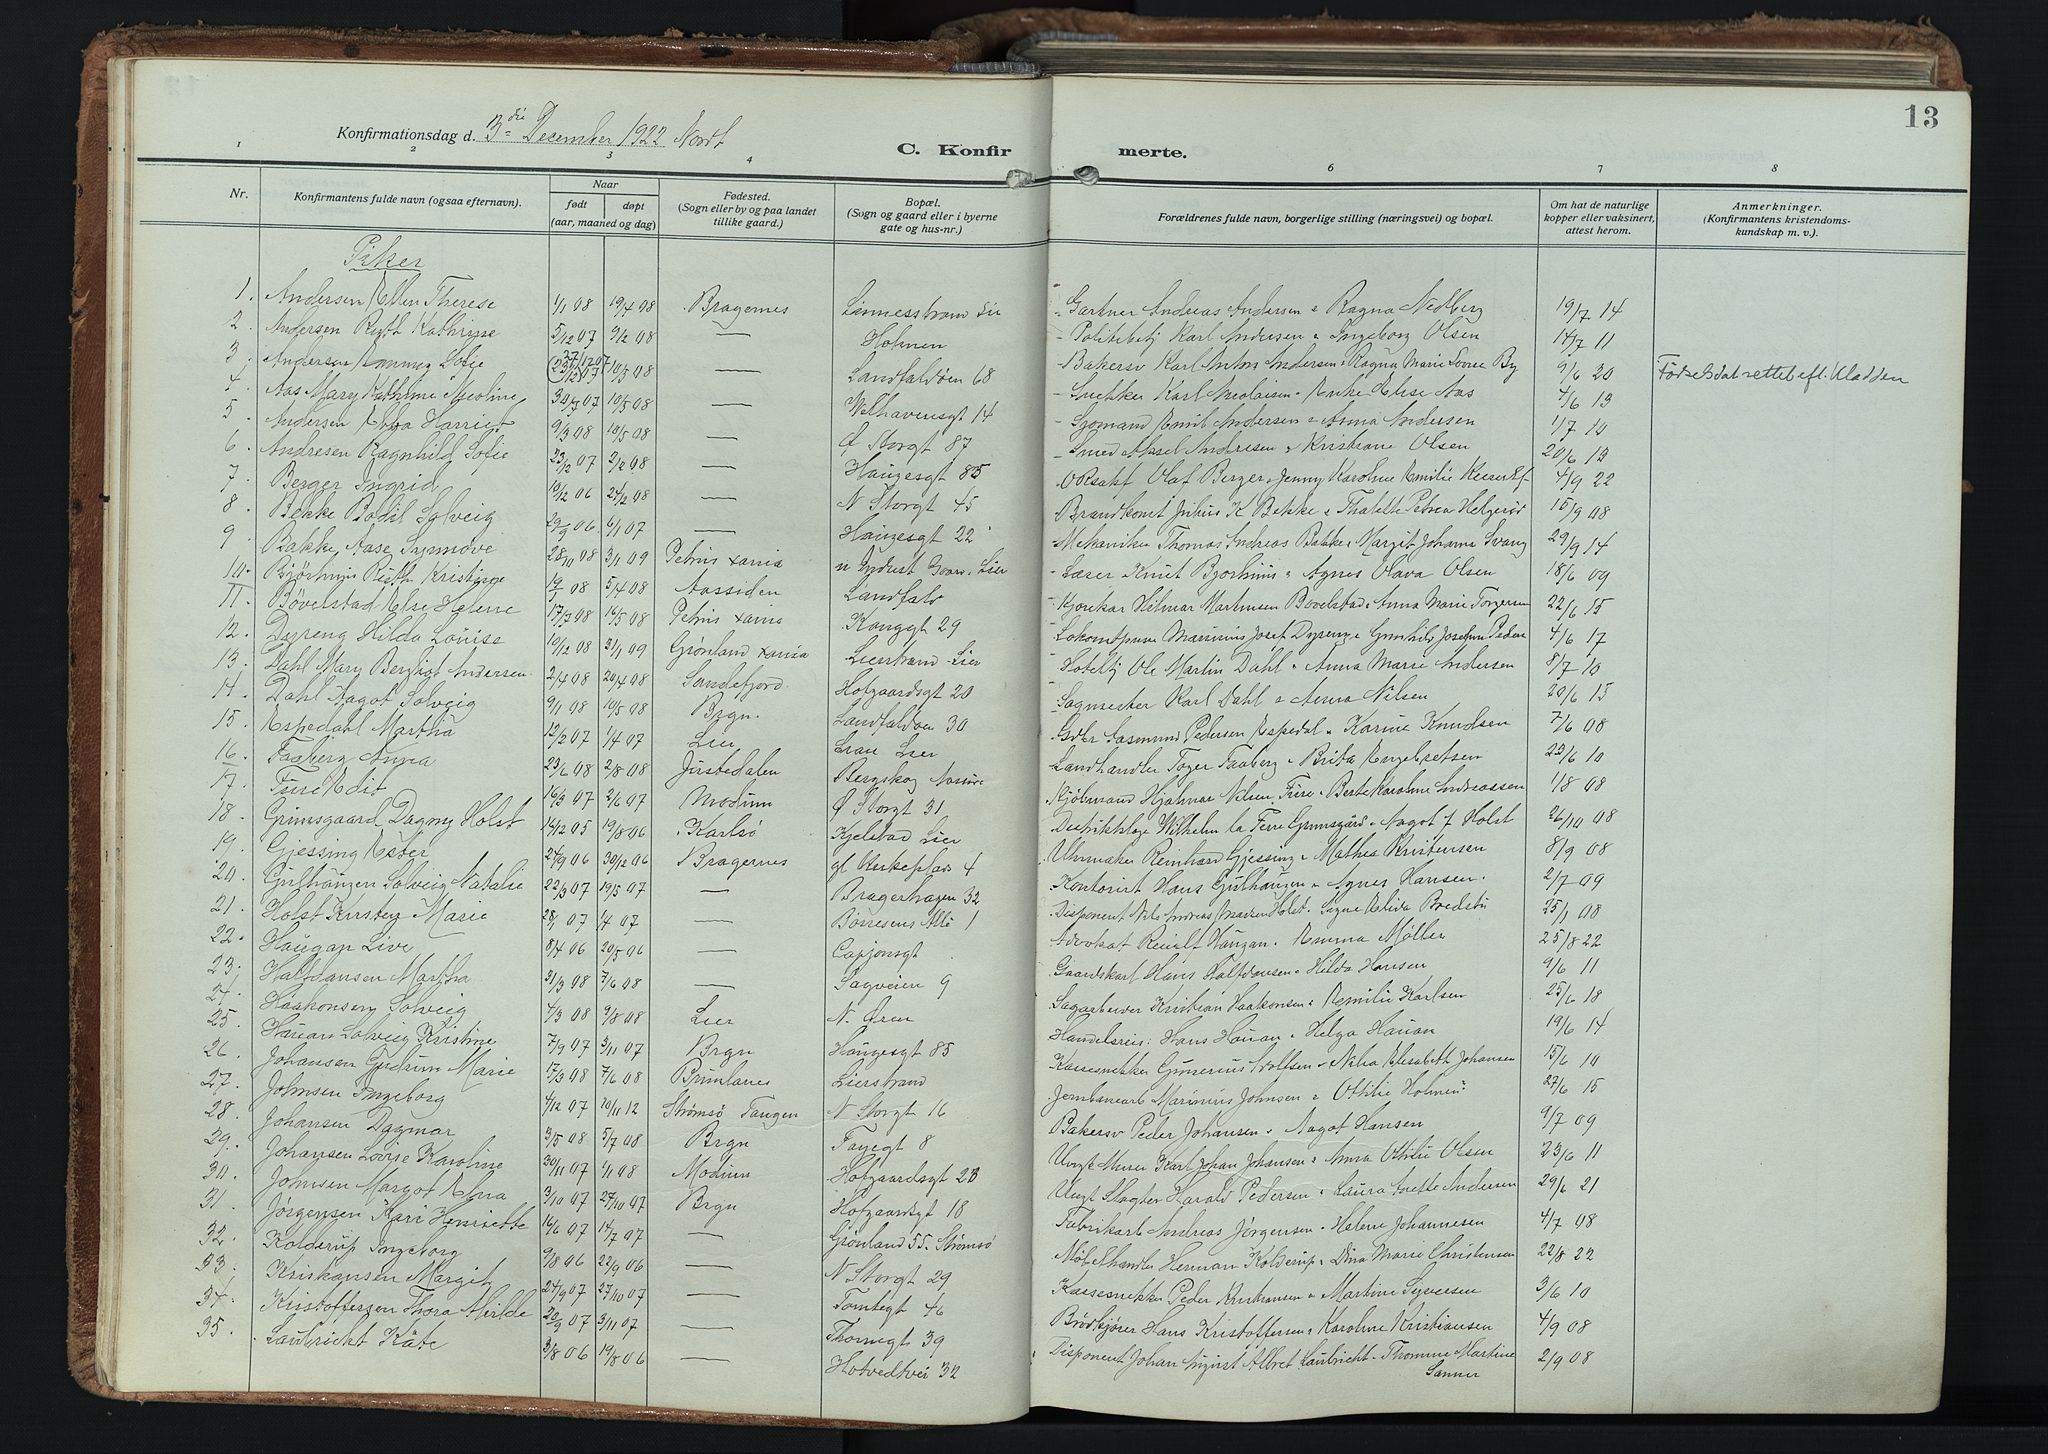 13
Konfirmationsdag d. 3die December 1922 Nordt
C. Konfirmerte.
1 2 3 4 6 7 8
Nr. Konfirmantens fulde navn (ogsaa efternavn). Naar født døpt (aar, maaned og dag) Fødested. (Sogn eller by og paa landet tillike gaard.) Bopæl. (Sogn og gaard eller i byerne gate og hus-nr.) Forældrenes fulde navn, borgerlige stilling (næringsvei) og bopæl. Om hat de naturlige kopper eller vaksinert, attest herom. Anmerkninger. (Konfirmantens kristendomskundskap m. v.).
Piker
1. Andersen Ellen Therese 1/1 08 19/4 08 Bragernes Linnesstrand Lier Gartner Andreas Andersen Ragna Nedberg 19/7 14
2. Andersen Ruth Kathrine 5/12 07 9/2 08 — Holmen Politibetj Karl Andersen Ingeborg Olsen 14/7 11
3. Andersen Sofie 10/5 08 — Landfaldøen 68 Bakersv Karl Anton Andersen Ragna Marie Lovise By 9/6 20 Fødselsdat rettet eft. Kladden
4. Aas Mary Kathrine Nicoline 30/7 07 10/5 08 — Welhavensgt 14 Snekker Karl Nicolaisen Elise Aas 4/6 13
5. Andersen Ebba Harriet 9/3 08 10/5 08 — Ø Storgt 87 Sjømand Emil Andersen Anna Andersen 1/7 10
6. Andresen Ragnhild Sofie 23/12 07 2/2 08 — Haugesgt 85 Smed Aksel Andresen Kristiane Olsen 20/6 13
7. Berger Ingrid 10/12 06 — N Storgt 45 O.R.sakf Olaf Berger Jenny Karoline Emilie 4/9 22
8. Bekke Bodil Solveig 29/9 06 6/1 07 — Haugesgt 22 Brandkonst Julius K Bekke Petrea Helgerød 15/9 08
9. Bakke Aase Synnøve 28/10 08 3/1 09 Petrus Xania Lier Mekaniker Thomas Andreas Bakke Margit Johanne Svang 29/9 14
10. Bjørhuus Ruth Kristine 5/4 08 Aassiden Landfald Læser Knut Bjørhuus Agnes Olava Olsen 18/6 09
11. Bøvelstad Else Helene 17/3 08 Petrus Xania Konggt 29 Hilmar Martinsen Bøvelstad Anna Marie Torgersen 22/6 15
12. Dyreng Hilda Louise 10/12 08 31/1 09 Grønland Xania Lierstrand Lier Marinius Josef Dyreng Gunhild Josefine 4/6 17
13. Dahl Mary Bergliot Andersen 2/4 08 20/4 08 Sandefjord Hofgaardsgt 20 Hotelbj Ole Martin Dahl Anna Marie Andersen 8/7 10
14. Dahl Aagot Solveig 9/1 08 10/5 08 Brgn. Landfaldøen 30 Sagmester Karl Dahl Anna Nilsen 20/6 15
15. Espedahl Martha 12/2 07 1/4 07 Lier Lier Gdbr Aasmund Pedersen Espedal Karine Knudsen 7/6 08
16. Faaberg Anna 23/6 08 2/8 08 Jostedalen Bergskog Landhandler Faaberg Brita Engebretsen 23/6 10
17. Edit 16/3 07 2/6 07 Modum Ø Storgt 31 Kjøbmand Hjalmar Nilsen Bertekaroline Andreassen 1/8 08
18. Grimsgaard Dagny Holst 14/12 05 19/8 06 Karlsø Kjelstad Lier Distriktslæge Wilhelm Grimsgård Aagot f Holst 26/10 08
19. Gjessing Ester 24/9 06 30/12 06 Bragernes gl Kirkeplads 4 Uhrmaker Reinhard Gjessing Mathea Kristensen 8/9 08
20. Gulhaugen Solveig Natalie 22/3 07 19/5 07 — Bragerhagen 32 Kontorist Hans Gulhaugen Agnes Hansen. 2/7 09
21. Holst Kirsten Marie — Børresens Allé 1 Disponent Nils Andreas Madsen Holst Signe Elida Bredstu 25/1 08
22. Haugan Live 8/4 06 20/5 06 — Cappensgt Advokat Haugan Emma Møller 25/8 22
23. Halfdansen Martha 31/3 08 7/6 08 — Sagveien 9 Gaardskarl Hans Halfdansen Hilda Hansen 9/6 11
24. Haakonsen Solveig 4/3 08 9/8 08 Lier N. Øren Sagarbeider Kristian Haakonsen Emilie Karlsen 25/6 18
25. Hauan Solveig Kristine 7/9 07 3/11 07 Brgn Haugesgt 85 Handelsreis: Hans Hauan Helga Hauan 19/6 14
26. Johansen Gudrun Marie 17/3 08 7/6 08 Brunlanes Lierstrand Kassesnekker Gunerius Elisabeth Johansen 15/6 10
27. Johnsen Ingeborg 4/12 07 20/11 12 Strømsø Tangen N Storgt 16 Jernbanearb Marinius Johnsen Othilie 27/6 15
28. Johansen Dagmar 3/5 08 5/7 08 Brgn Fayegt 8 Bakersv Peder Johansen Aagot Hansen 9/7 09
29. Johansen Lovise Karoline 30/11 07 1/1 08 Modum Hofgaardsgt 23 Ungk Murer Karl Johan Johansen Anna Othilie Olsen 23/6 11
30. Johnsen Margot Elna 3/10 07 27/10 07 Brgn Hofgaardsgt 18 Ungt Slagter Harald Pedersen Laura Andersen 29/6 21
31. Jørgensen Kari Henriette 16/6 07 14/7 07 — Grønland 55. Strømsø Fabrikarb Andreas Jørgensen Helene Johannesen 4/7 08
32. Kolderup Ingeborg 9/8 06 22/9 06 — N Storgt 29 Møbelhandler Herman Kolderup Dina Marie Christensen 22/8 22
33. Kristiansen Margit 24/9 07 27/10 07 — Tomtegt 46 Kassesnekker Peder Kristiansen Martine Syversen 3/6 10
34. Kristoffersen Thora Mirlde 20/9 07 3/11 07 — Thornegt 39 Brødkjører Hans Kristoffersen Karoline Kristiansen 4/9 08
35. Laubricht Käte 3/8 06 19/8 06 — Hotvedtvei 32 Disponent Johan August Albret Laubricht Thomine Martine Sanner 2/9 08